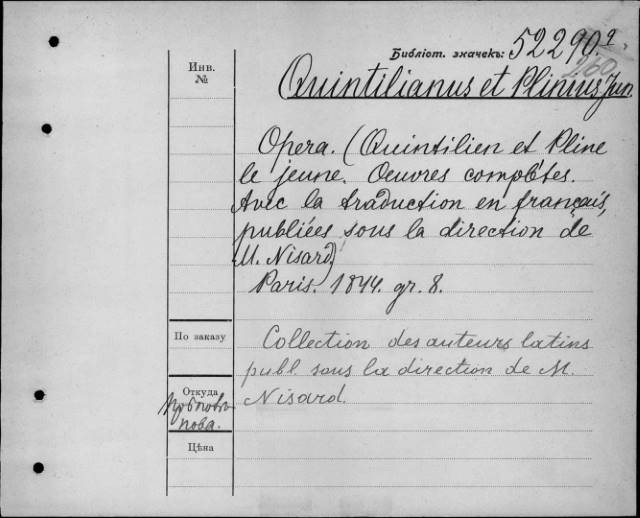 Библіот. значекъ: 52290.
Инв.
№
Quintilianus et Plinius Jun.
Opera. (Quintilien et Pline
le jeune. Oeuvres complètes.
Avec la traduction en français,
publiées sous la direction de
M. Nisard)
Paris. 1844. gr. 8.
По заказу
Collection des auteurs latins
publ. sous la direction de M.
Nisard.
Откуда
Цѣна